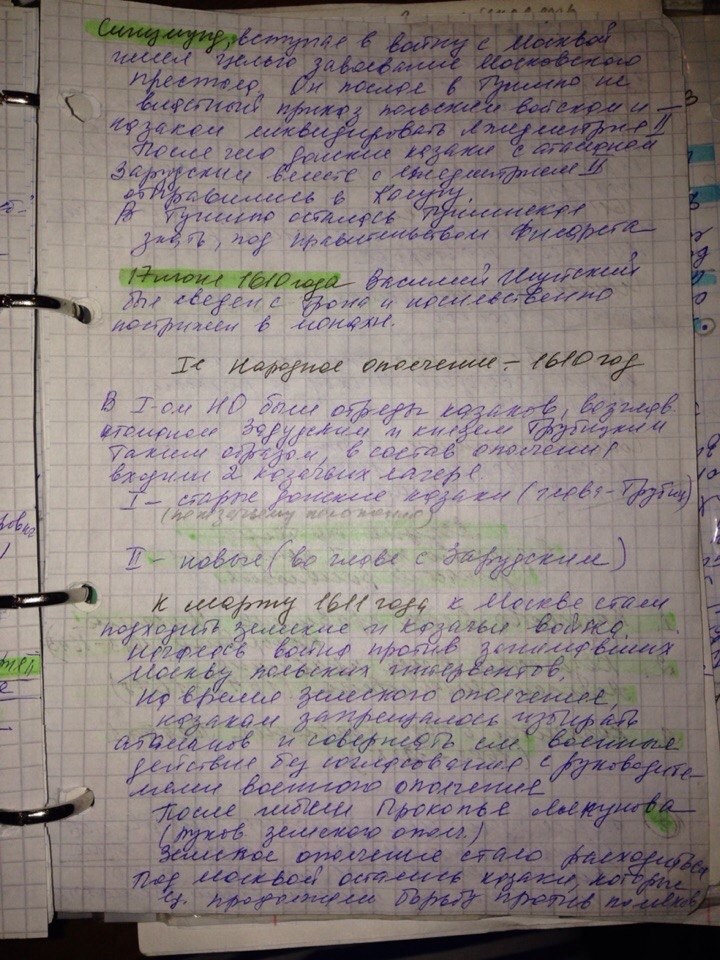 Сигизмунд, вступая в войну с Москвой
имел целью завоевание Московского
престола. Он послал в Тушино не
приказ польским войскам и
казакам ликвидировать Лжедмитрия II
После чего донские казаки с атаманом
Зарудским вместе с Лжедмитрием II
отправились в Калугу.
В Тушино осталась Тушинская
знать, под правительством Филарета
17 июня 1610 года Василий Шуйский
был сведен с трона и насильственно
пострижен в монахи.
I-е Народное ополчение – 1610 год
В I-ом НО были отряды казаков, возглав.
атаманом Зарудским и князем Трубецким
таким образом, в состав ополчения
входили 2 казачьих лагеря.
I – старые донские казаки (глава – Трубец)
(по казачьему положению)
II – новые (во главе с Зарудским)
К марту 1611 года к Москве стали
подходить земские и казачьи войска.
Началась война против занимавших
Москву польских интервентов.
На время земского ополчения,
казакам запрещалось избирать
атаманов и совершать им военные
действия без согласования с руководите-
лями военного ополчения
После гибели Прокопья Ляпунова
(руков земского ополч.)
Земское ополчение стало расходиться
Под Москвой остались казаки, которые
продолжали борьбу против поляков